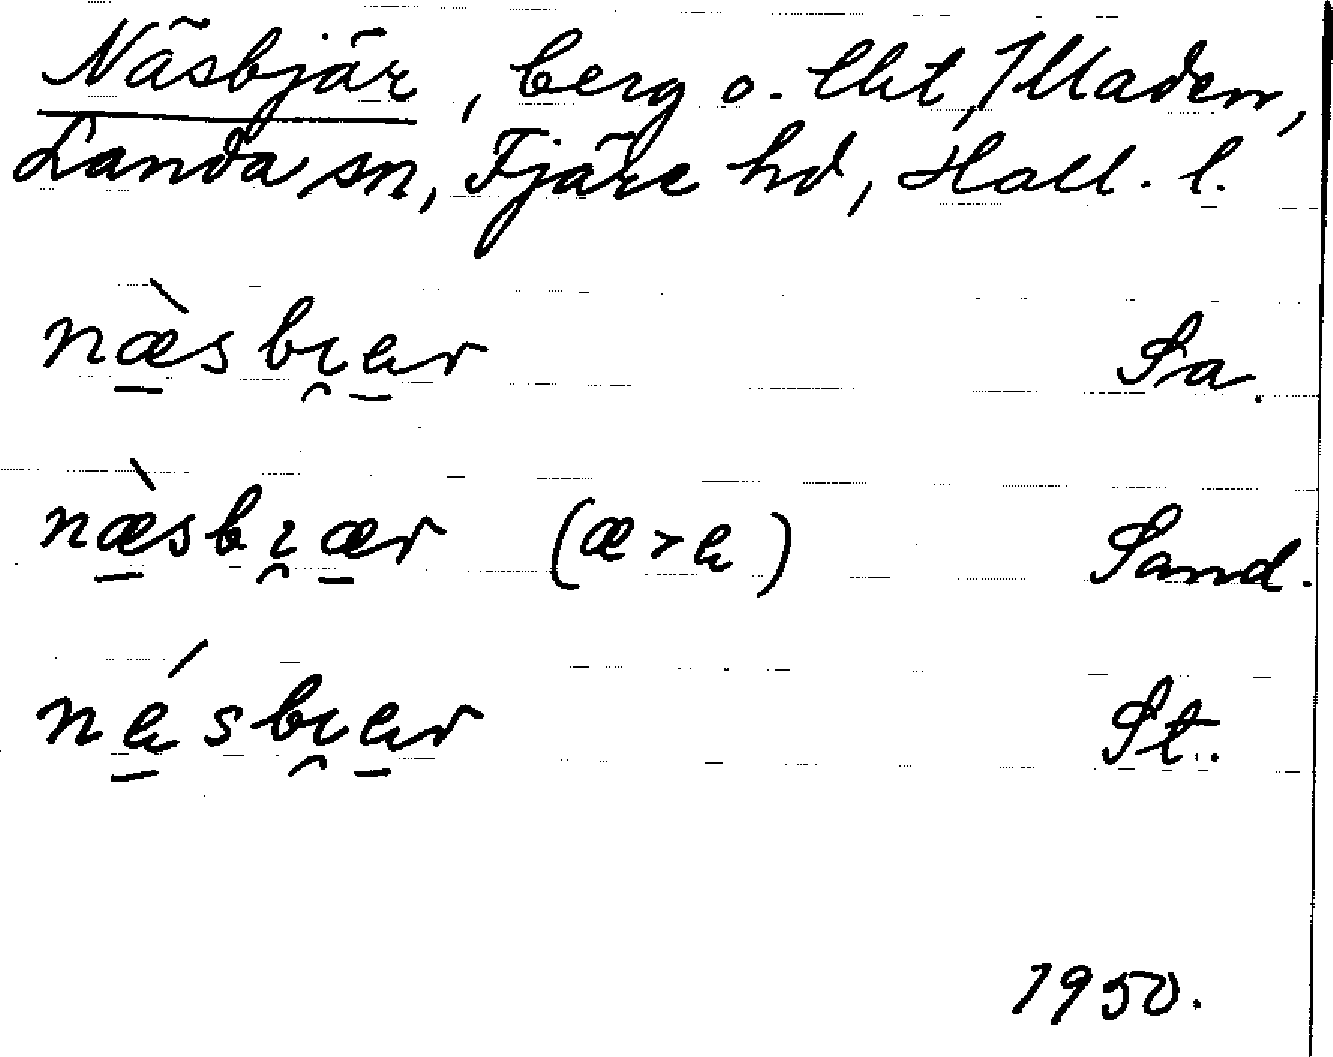 Näsbjär, berg o. lht, Maden,
Landa sn, Fjäre hd, Hall. l.
næ̀sbı̯ær Sa.
næ̀sbı̯ær (æ > a) Sand.
násbı̯ar St.
1950.